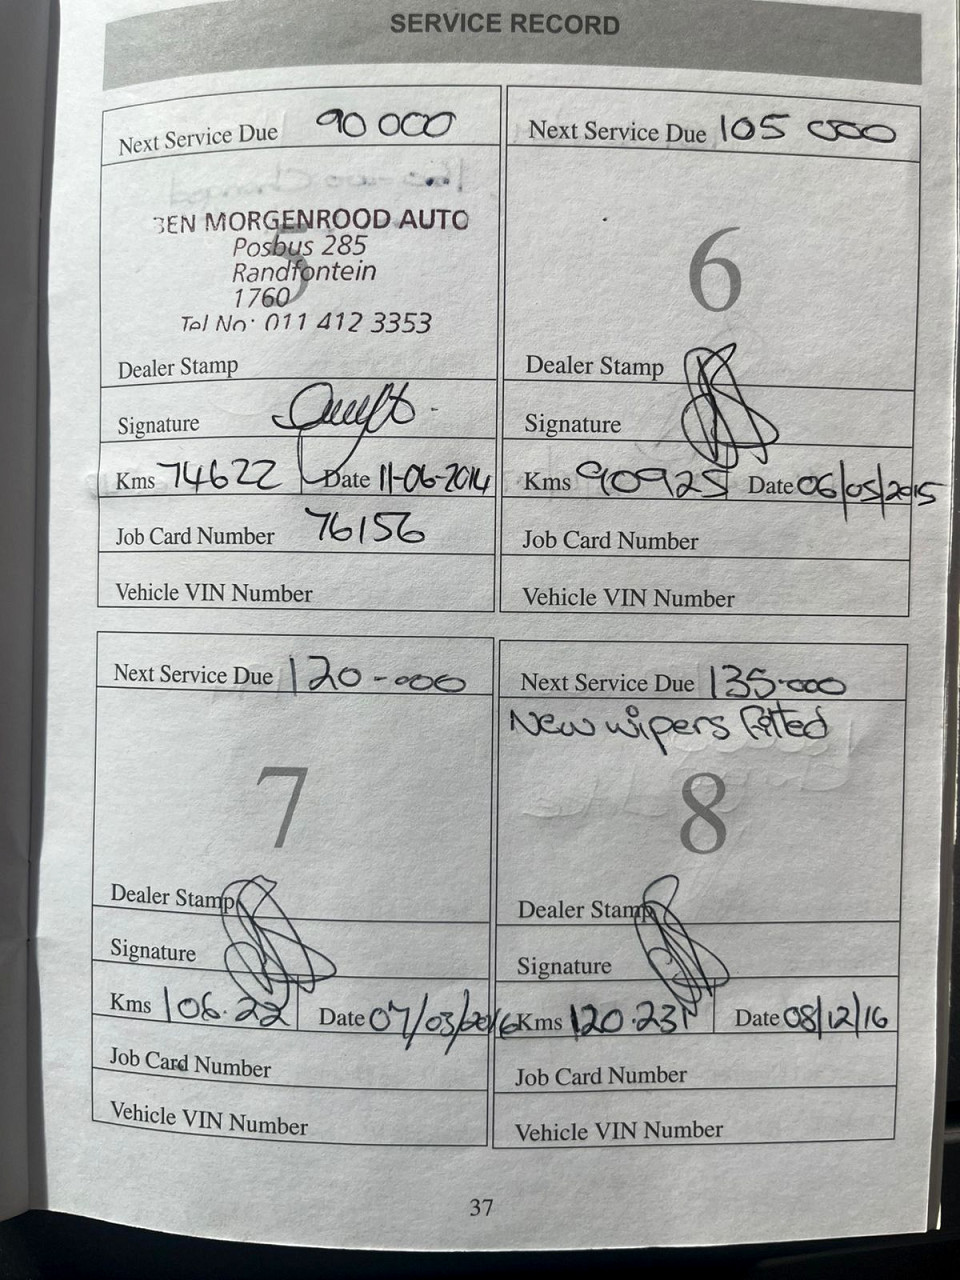 SERVICE RECORD
Next Service Due 90 000
BEN MORGENROOD AUTO
Posbus 285
5
Randfontein
1760
Tel No: 011 412 3353
Dealer Stamp
Signature
Kms 74622 Date 11-06-2014
Job Card Number 76156
Vehicle VIN Number
Next Service Due 105 000
6
Dealer Stamp
Signature
Kms 90925 Date 06/05/2015
Job Card Number
Vehicle VIN Number
Next Service Due 120-000
7
Dealer Stamp
Signature
Kms Date 07/03/2016
Job Card Number
Vehicle VIN Number
Next Service Due 135-000
New wipers fitted
8
Dealer Stamp
Signature
Kms Date 08/12/16
Job Card Number
Vehicle VIN Number
37